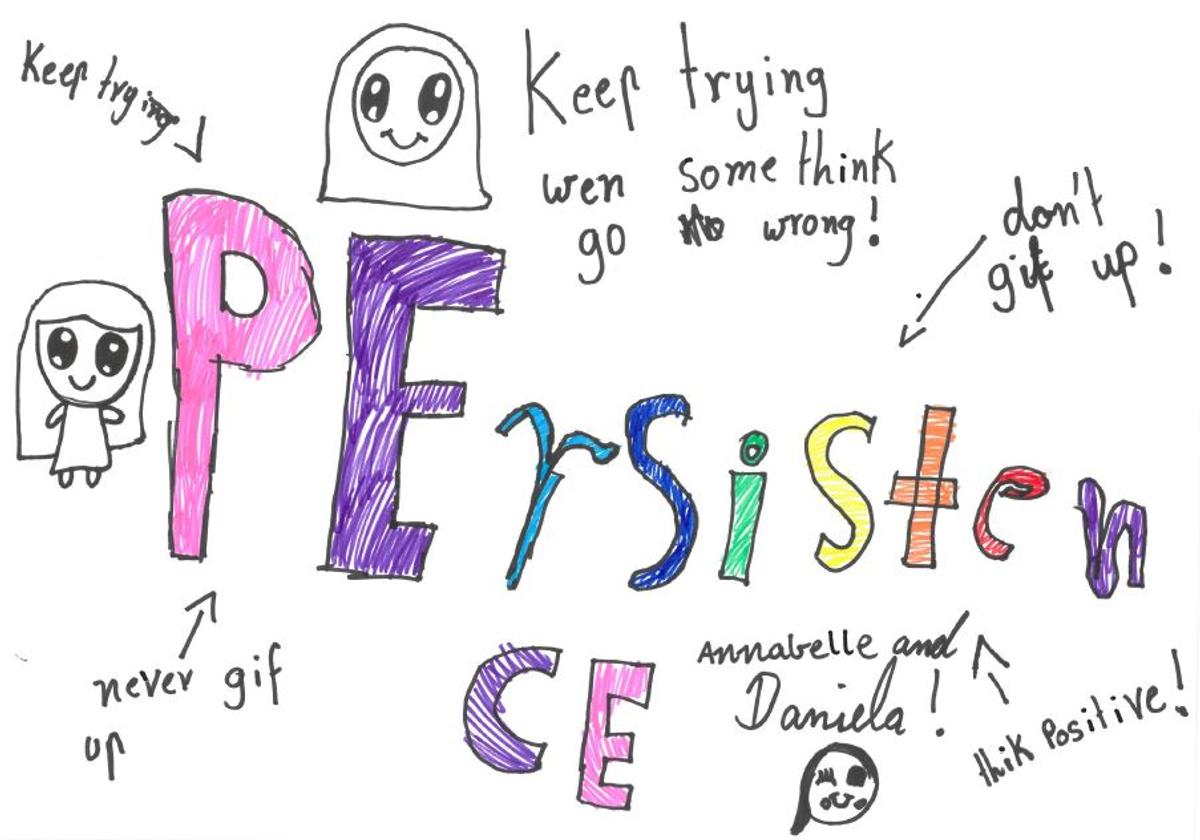 Keep trying
Keep trying
wen some think
go wrong!
don't
gif up!
PErsisten
CE
never gif
up
Annabelle and
Daniela!
thik Positive!